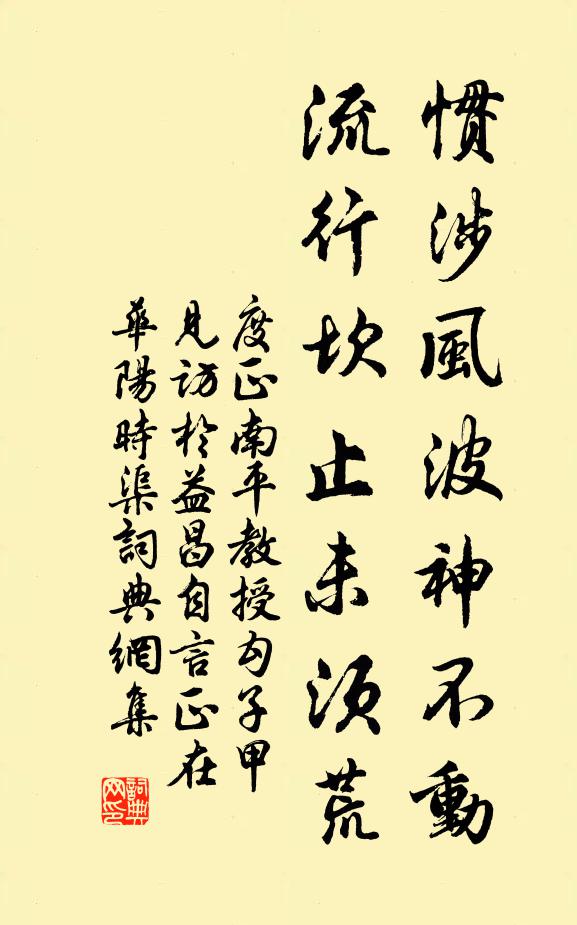 慣涉風波神不動
流行坎止未須荒
度正南平教授勾子甲
見訪於益昌自言正在
華陽時渠詞典網集
詞典網印